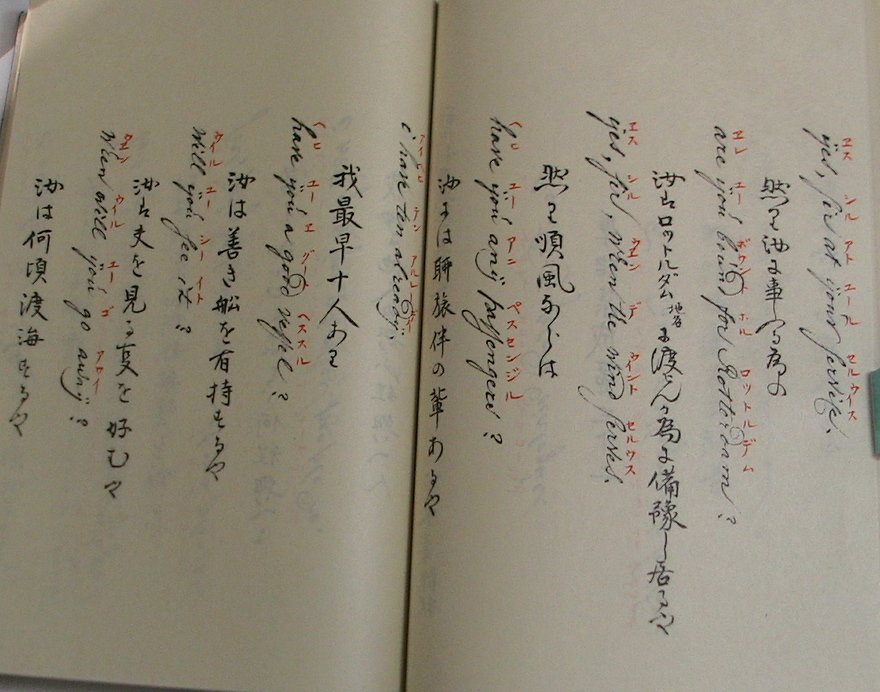 ヱス シル アト ユール セルウイス
yes, sir at your service.
然り汝に事へる為め
ヱレ ユー ボウント ホル ロットルデム
are you bound for Rotterdam?
汝はロットルダム地名に渡らんか為に備豫し居るや
ヱス シル ウエン デ ウイント セルウス
yes, sir, when the wind serves.
然り順風ならは
ヘヒ ユー アニ ペスセンジル
have you any passengers?
汝には聊旅伴の輩あるや
アイ ヘヒ テン アルレデイ
i have ten already.
我最早十人あり
ヘヒ ユー エ グート ヘススル
have you a good vessel?
汝は善き舩を有持するや
ウイル ユー シー イト
will you see it?
汝は夫を見る叓を好むや
ウエン ウイル ユー ゴ アウイ
when will you go away?
汝は何頃渡海するや